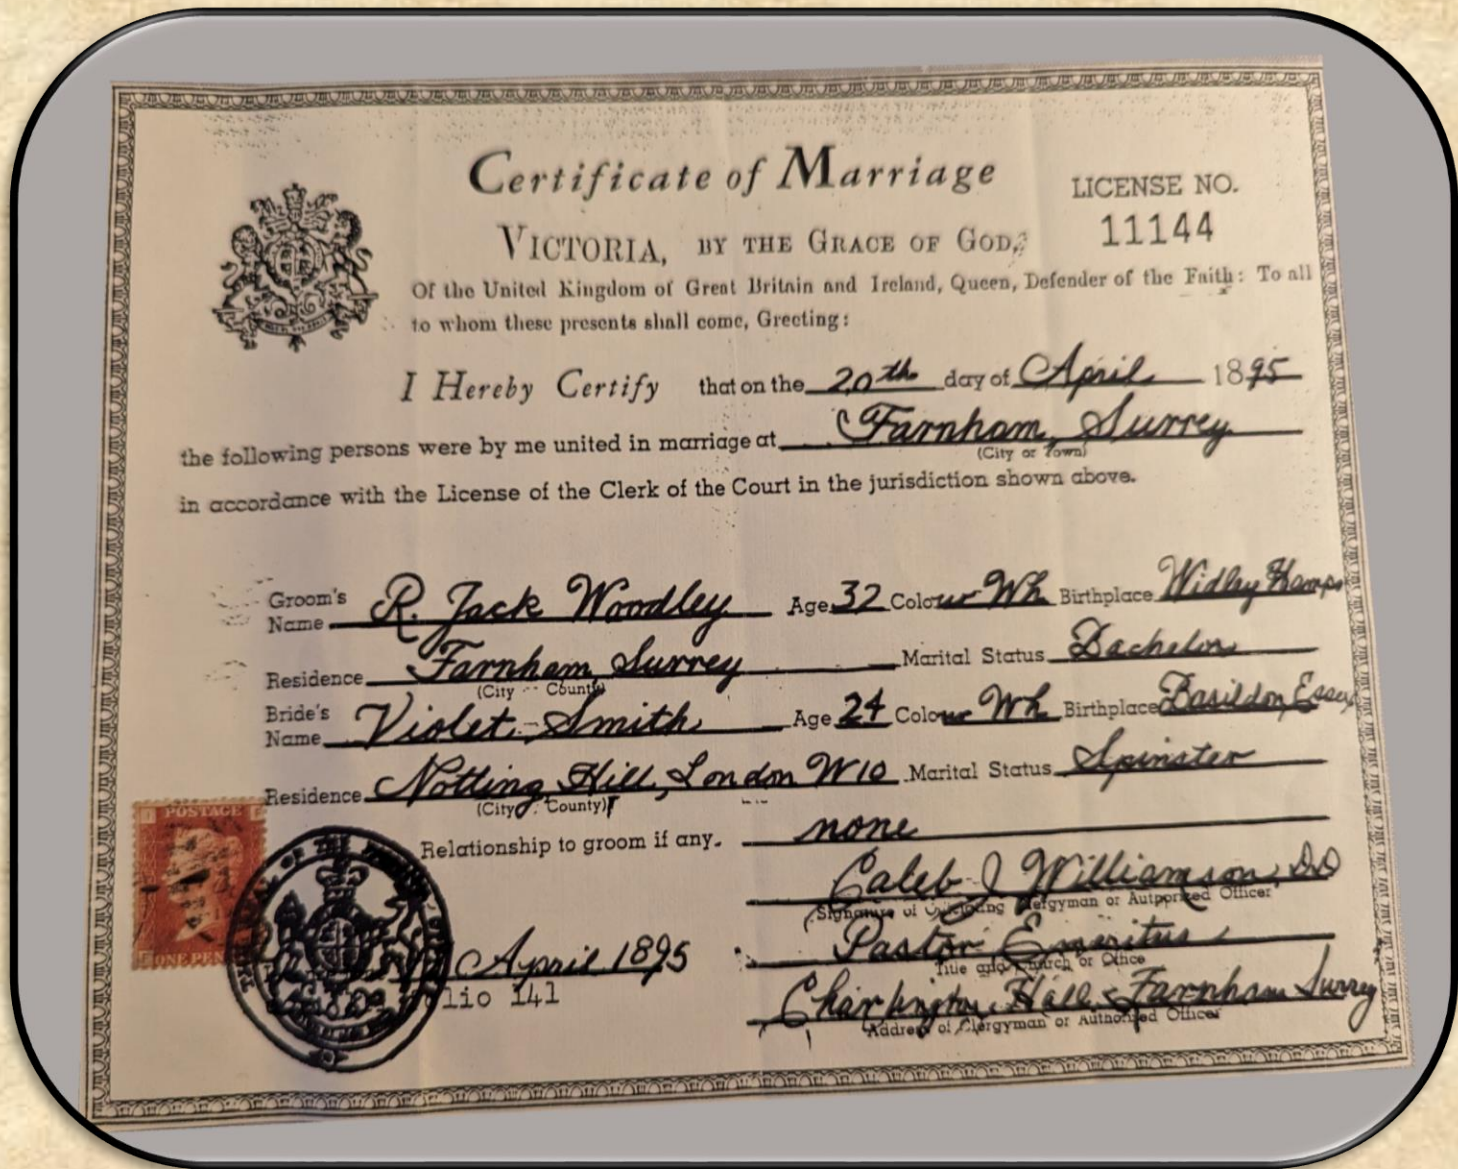 Certificate of Marriage
LICENSE NO.
11144
VICTORIA, BY THE GRACE OF GOD,
Of the United Kingdom of Great Britain and Ireland, Queen, Defender of the Faith: To all
to whom these presents shall come, Greeting:
I Hereby Certify that on the 20th day of April 1895
the following persons were by me united in marriage at Farnham, Surrey
(City or Town)
in accordance with the License of the Clerk of the Court in the jurisdiction shown above.
Groom's Name R. Jack Woodley Age 32 Colour Wh Birthplace Widley Hamps
Residence Farnham Surrey Marital Status Bachelor
(City County)
Bride's Name Violet Smith Age 24 Colour Wh Birthplace Basildon, Essex
Residence Notting Hill, London W10 Marital Status Spinster
(City County)
Relationship to groom if any. none
Caleb J Williamson, DD
Signature of Clergyman or Authorized Officer
Pastor Emeritus
Title and Church or Office
Hall Farnham Surrey
Address of Clergyman or Authorized Officer
POSTAGE
ONE PEN
SEAL OF THE
April 1895
lio 141